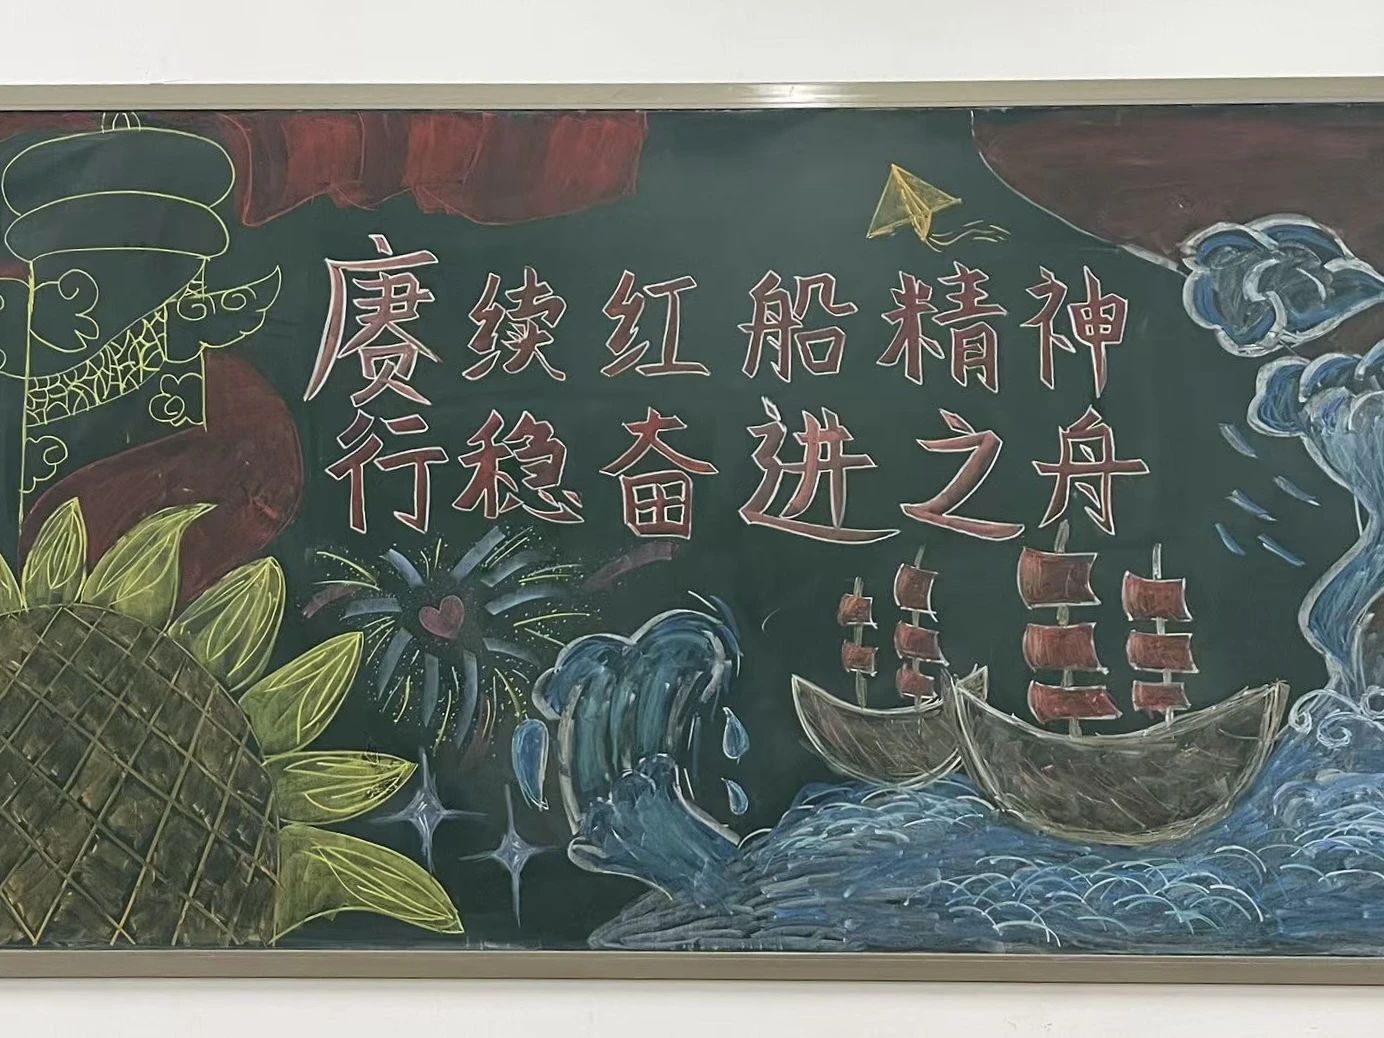 赓续红船精神
行稳奋进之舟